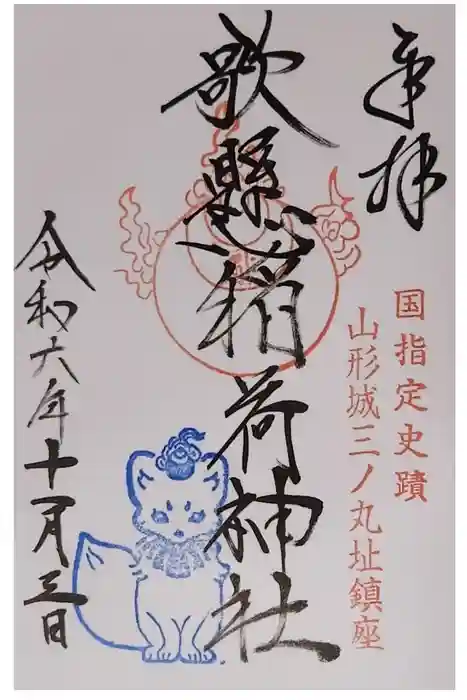 奉拝
国指定史蹟
山形城三ノ丸址鎮座
歌懸稲荷神社
令和六年十一月三日